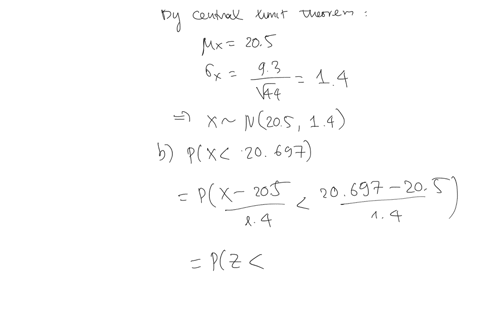 By central limit theorem:
μx = 20.5
σx = 9.3/√44 = 1.4
⇒ X ~ N(20.5, 1.4)
b) P(X < 20.697)
= P(X - 20.5/1.4 < 20.697 - 20.5/1.4)
= P(Z <